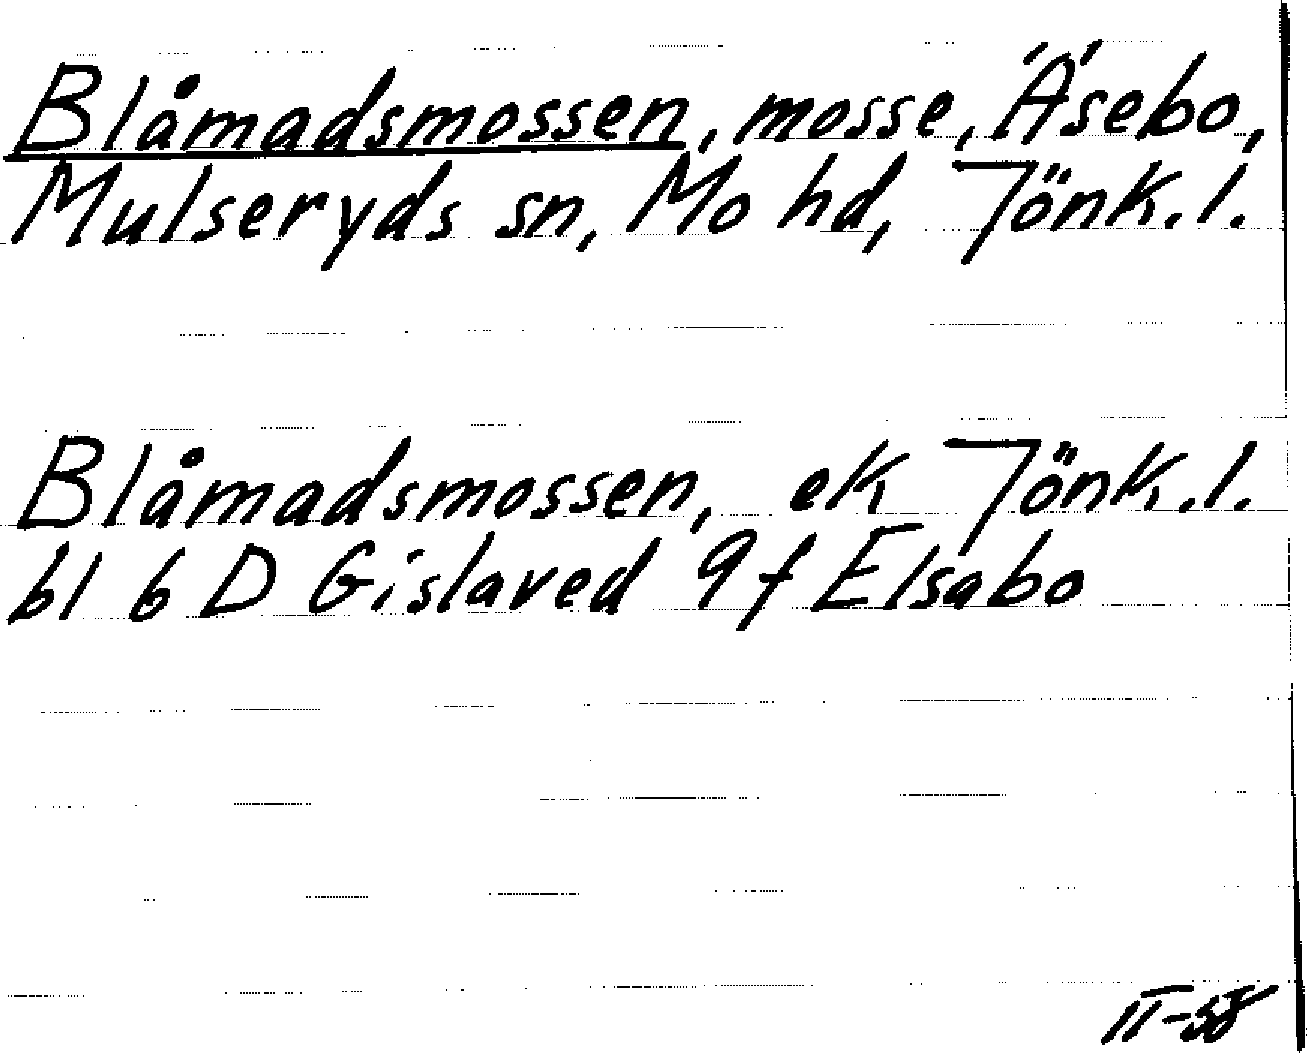 Blåmadsmossen, mosse, Äsebo,
Mulseryds sn, Mo hd, Jönk.l.
Blåmadsmossen, ek Jönk.l.
bl 6 D Gislaved 9f Elsabo
II-58